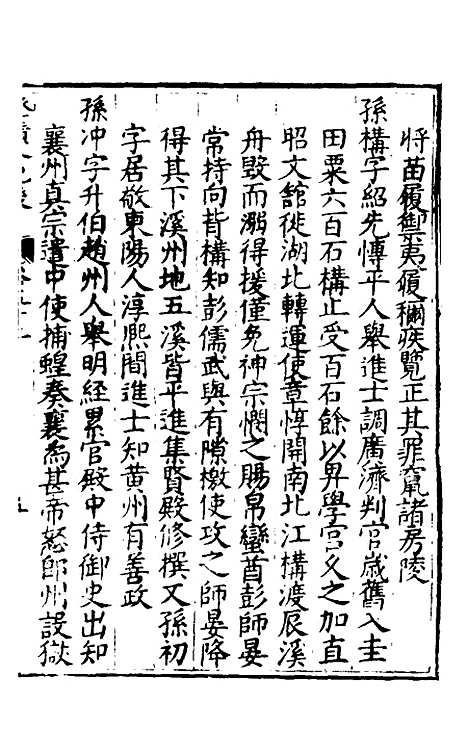 將苗履禦夷履稱疾覽正其罪竄諸房陵
孫構字紹先博平人舉進士調廣濟判官歲舊入圭
田粟六百石構止受百石餘以畀學官久之加直
昭文舘徙湖北轉運使章惇開南北江構渡辰溪
舟毀而溺得援僅免神宗憫之賜帛蠻酋彭師晏
常持向背構知彭儒武與有隙檄使攻之師晏降
得其下溪州地五溪皆平進集賢殿修撰又孫初
字居敬東陽人淳熙間進士知黄州有善政
孫冲字升伯趙州人舉明經累官殿中侍御史出知
襄州真宗遣中使捕蝗奏襄為甚帝怒郎州設獄